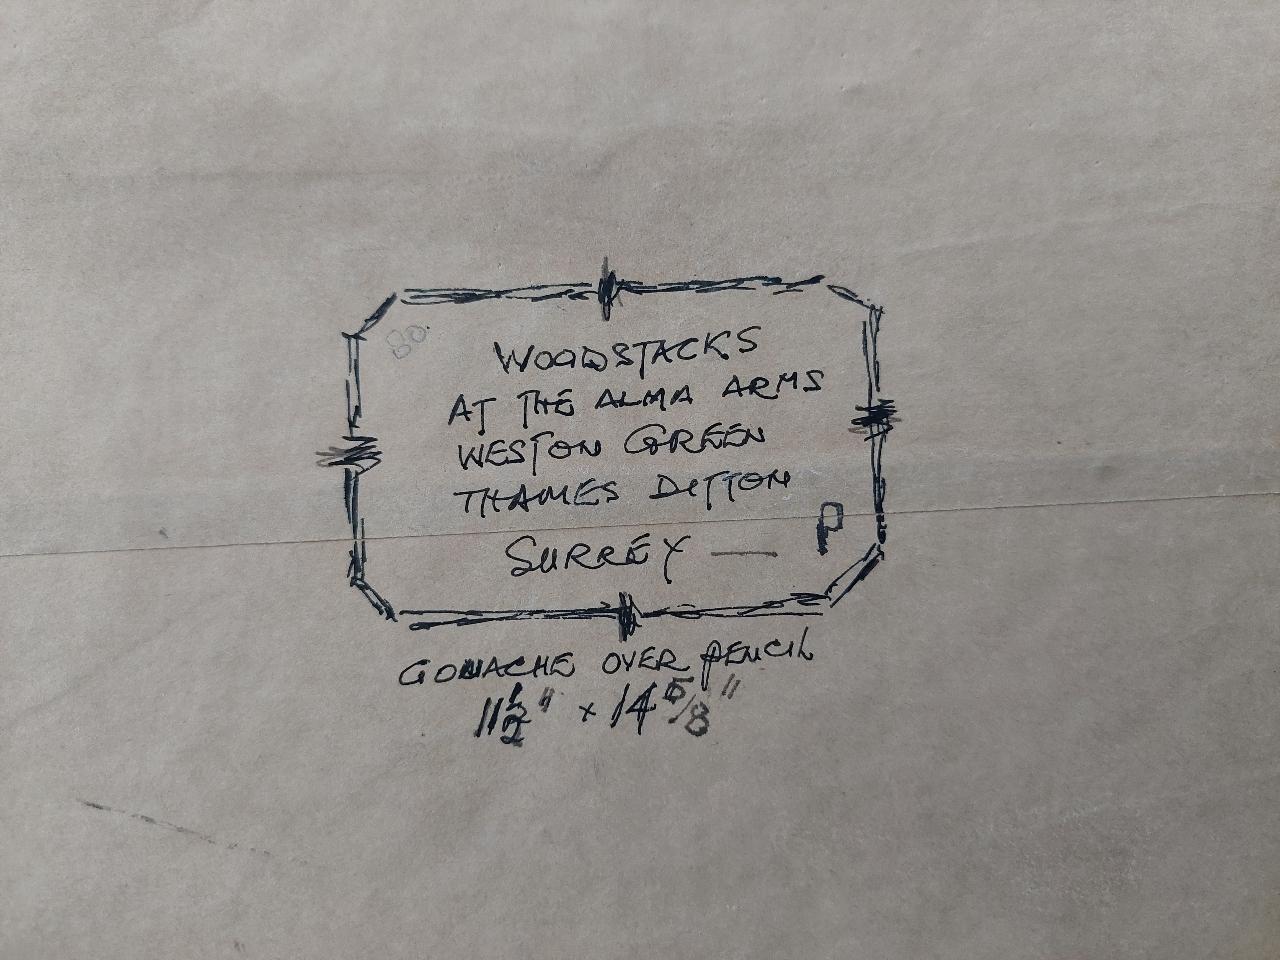 80
WOODSTACKS
AT THE ALMA ARMS
WESTON GREEN
THAMES DITTON
SURREY — P
GOUACHE OVER PENCIL
11 1/2" x 14 5/8"